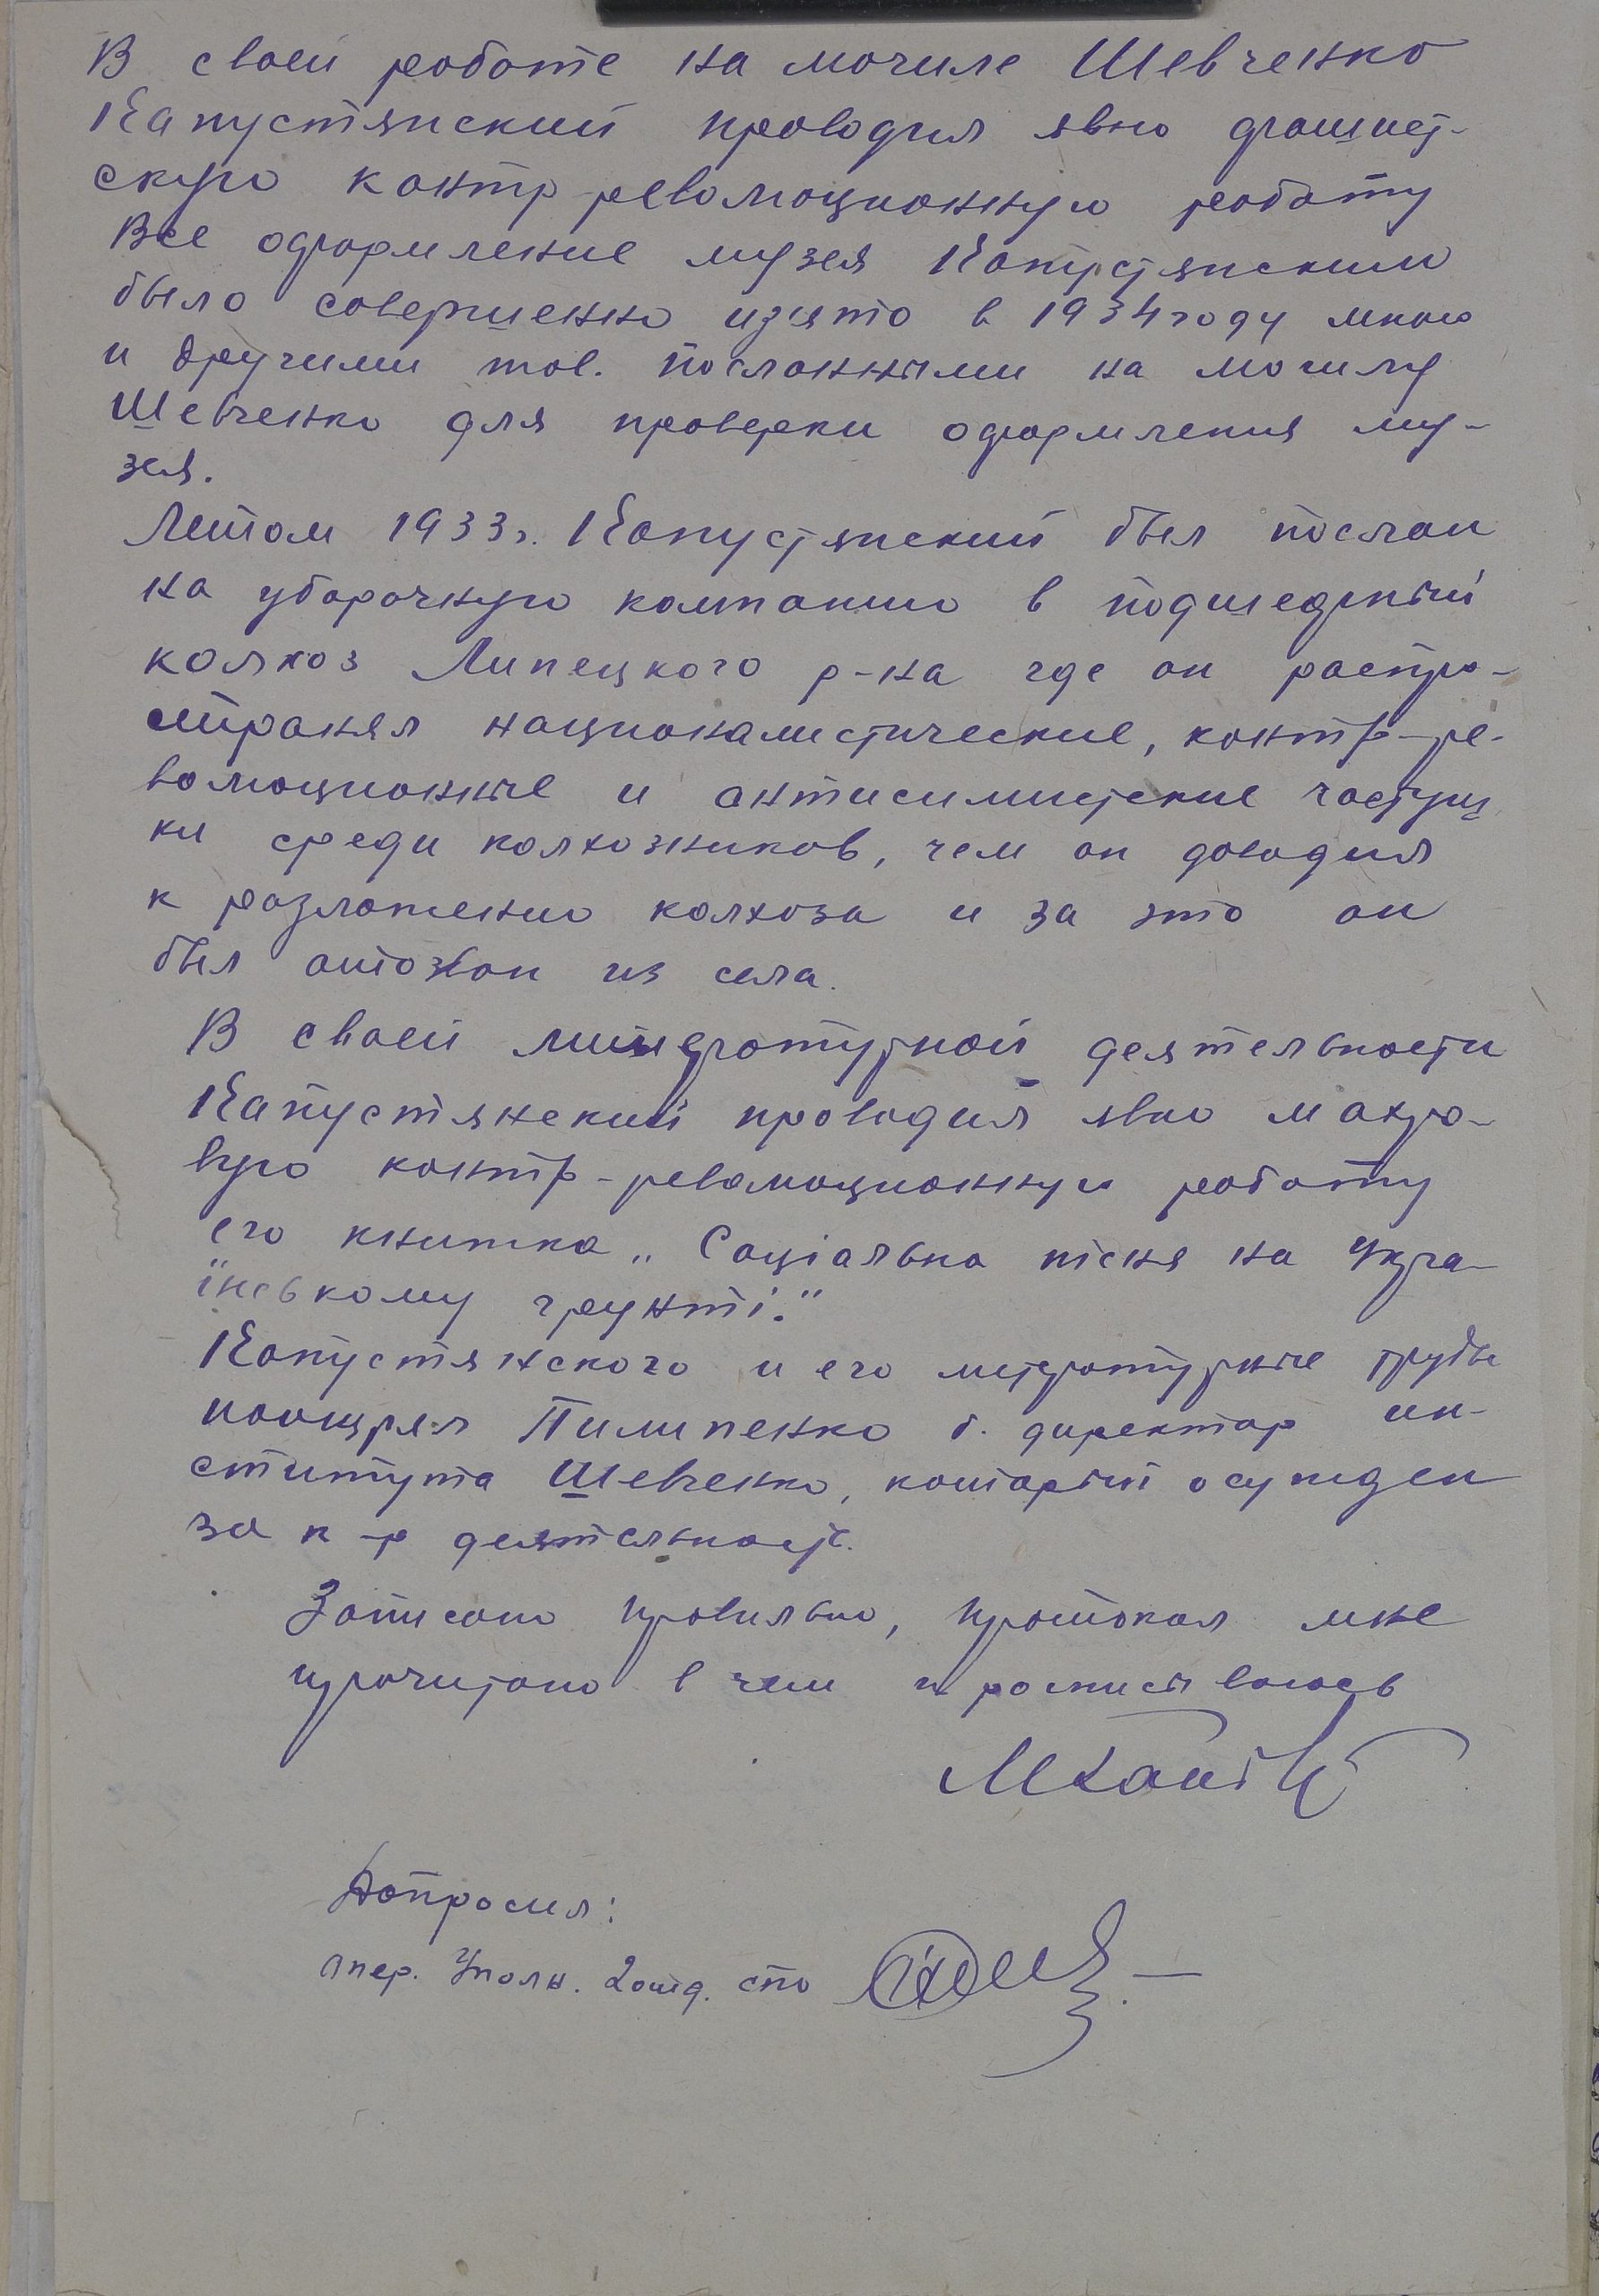 В своей работе на могиле Шевченко
Капустянский проводил явно фашист-
скую контр-революционную работу
Все оформление музея Капустянским
было совершенно изято в 1934 году мною
и другими тов. посланными на могилу
Шевченко для проверки оформления му-
зея.
Летом 1933 г. Капустянский был послан
на уборочную компанию в подшефный
колхоз Липецкого р-на где он распро-
странял националистические, контр-ре-
волюционные и антисимистские частуш
ки среди колхозников, чем он доводил
к разложению колхоза и за это он
был отозван из села.
В своей литературной деятельности
Капустянский проводил явно махро-
вую контр-революционную работу
его книжка „Соціальна пісня на Укра-
їнському грунті."
Капустянского и его литературные труды
поощрял Пилипенко б. директор ин-
ститута Шевченко, который осужден
за к-р деятельность.
Записано правильно, протокол мне
прочитано в чем и росписываюсь
Допросил:
Опер. Уполн. 2 отд. СПО